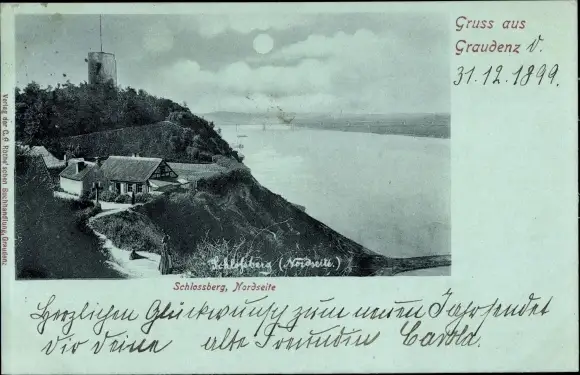 Gruss aus
Graudenz d.
31.12.1899.
Verlag der C. F. Röthe'schen Buchhandlung, Graudenz
Schloßberg (Nordseite.)
Schlossberg, Nordseite
Herzlichen Glückwunsch zum neuen Jahrhundert
dir deine alte Freundin Carola.